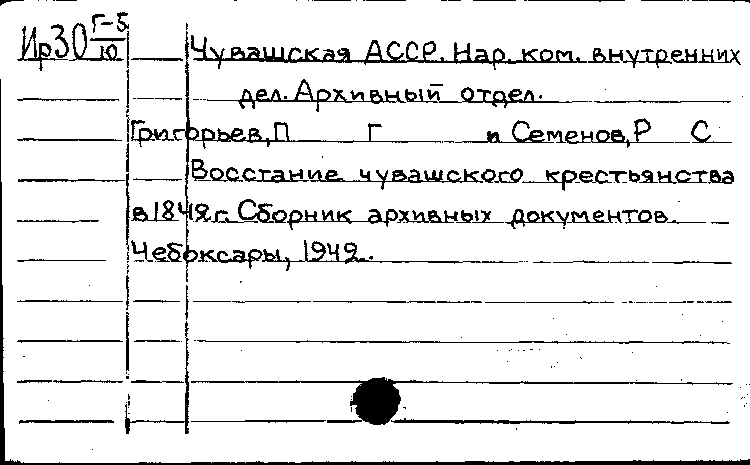 Ир30 Г-5/10 Чувашская АССР. Нар. ком. внутренних
дел. Архивный отдел.
Григорьев, П Г и Семенов, Р С
Восстание чувашского крестьянства
в 1842 г. Сборник архивных документов.
Чебоксары, 1942.